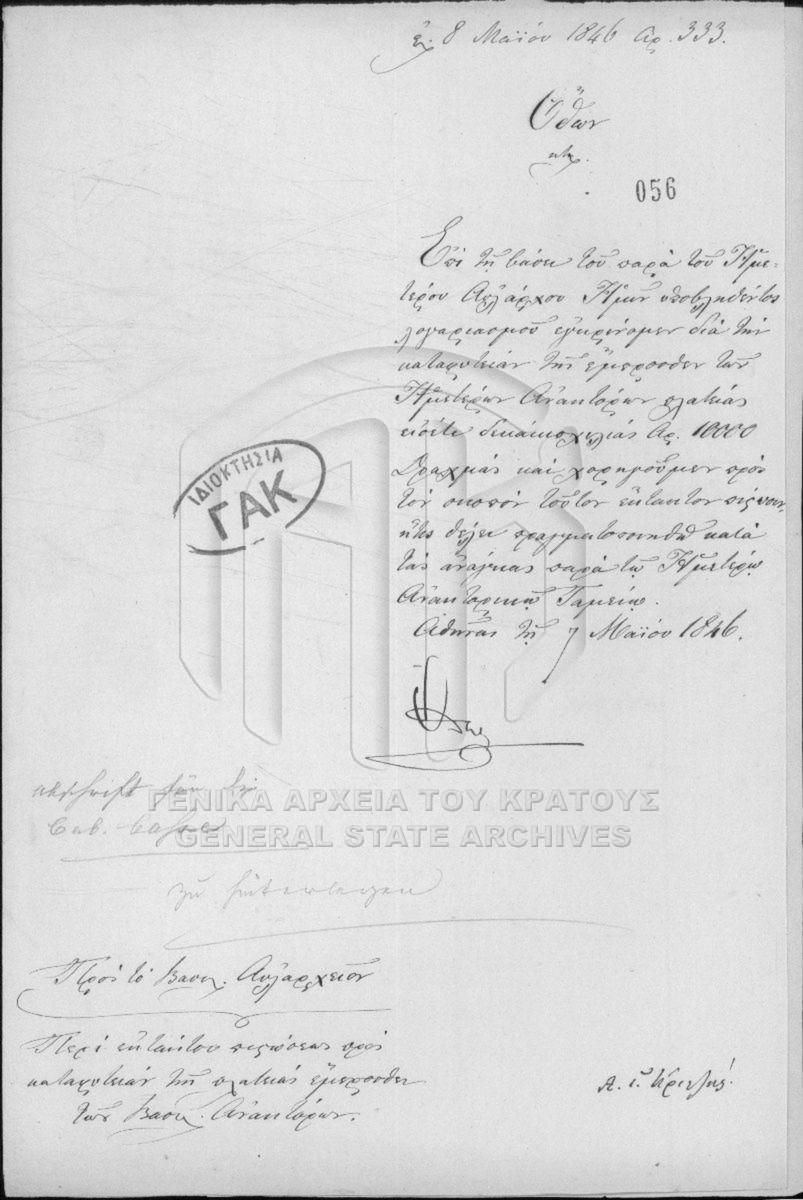 8 Μαΐου 1846 αρ. 333.
Ὄθων
κτλ.
056
Ἐπὶ τῇ βάσει τοῦ παρὰ τοῦ Ἡμε-
τέρου Αὐλάρχου Ἡμῖν ὑποβληθέντος
λογαριασμοῦ ἐγκρίνομεν διὰ τὴν
καταφυτείαν τῆς ἔμπροσθεν τῶν
Ἡμετέρων Ἀνακτόρων πλατείας
εἰσέτι δεκάκισχιλίας Ἀρ. 10000
Δραχμὰς καὶ χορηγοῦμεν πρὸς
τὸν σκοπὸν τοῦτον ἔκτακτον πίστωσιν,
ἥτις θέλει πραγματοποιηθῆ κατὰ
τὰς ἀνάγκας παρὰ τῷ Ἡμετέρῳ
Ἀνακτορικῷ Ταμείῳ.
Ἀθήνας τῇ 7 Μαΐου 1846.
Ὄθων
ΙΔΙΟΚΤΗΣΙΑ
ΓΑΚ
Abschrift für die
Cab. Casse
zu hinterlegen
ΓΕΝΙΚΑ ΑΡΧΕΙΑ ΤΟΥ ΚΡΑΤΟΥΣ
GENERAL STATE ARCHIVES
Πρὸς τὸ Βασιλ. Αὐλαρχεῖον
Περὶ ἐκτάκτου πιστώσεως πρὸς
καταφυτείαν τῆς πλατείας ἔμπροσθεν
τῶν Βασιλ. Ἀνακτόρων.